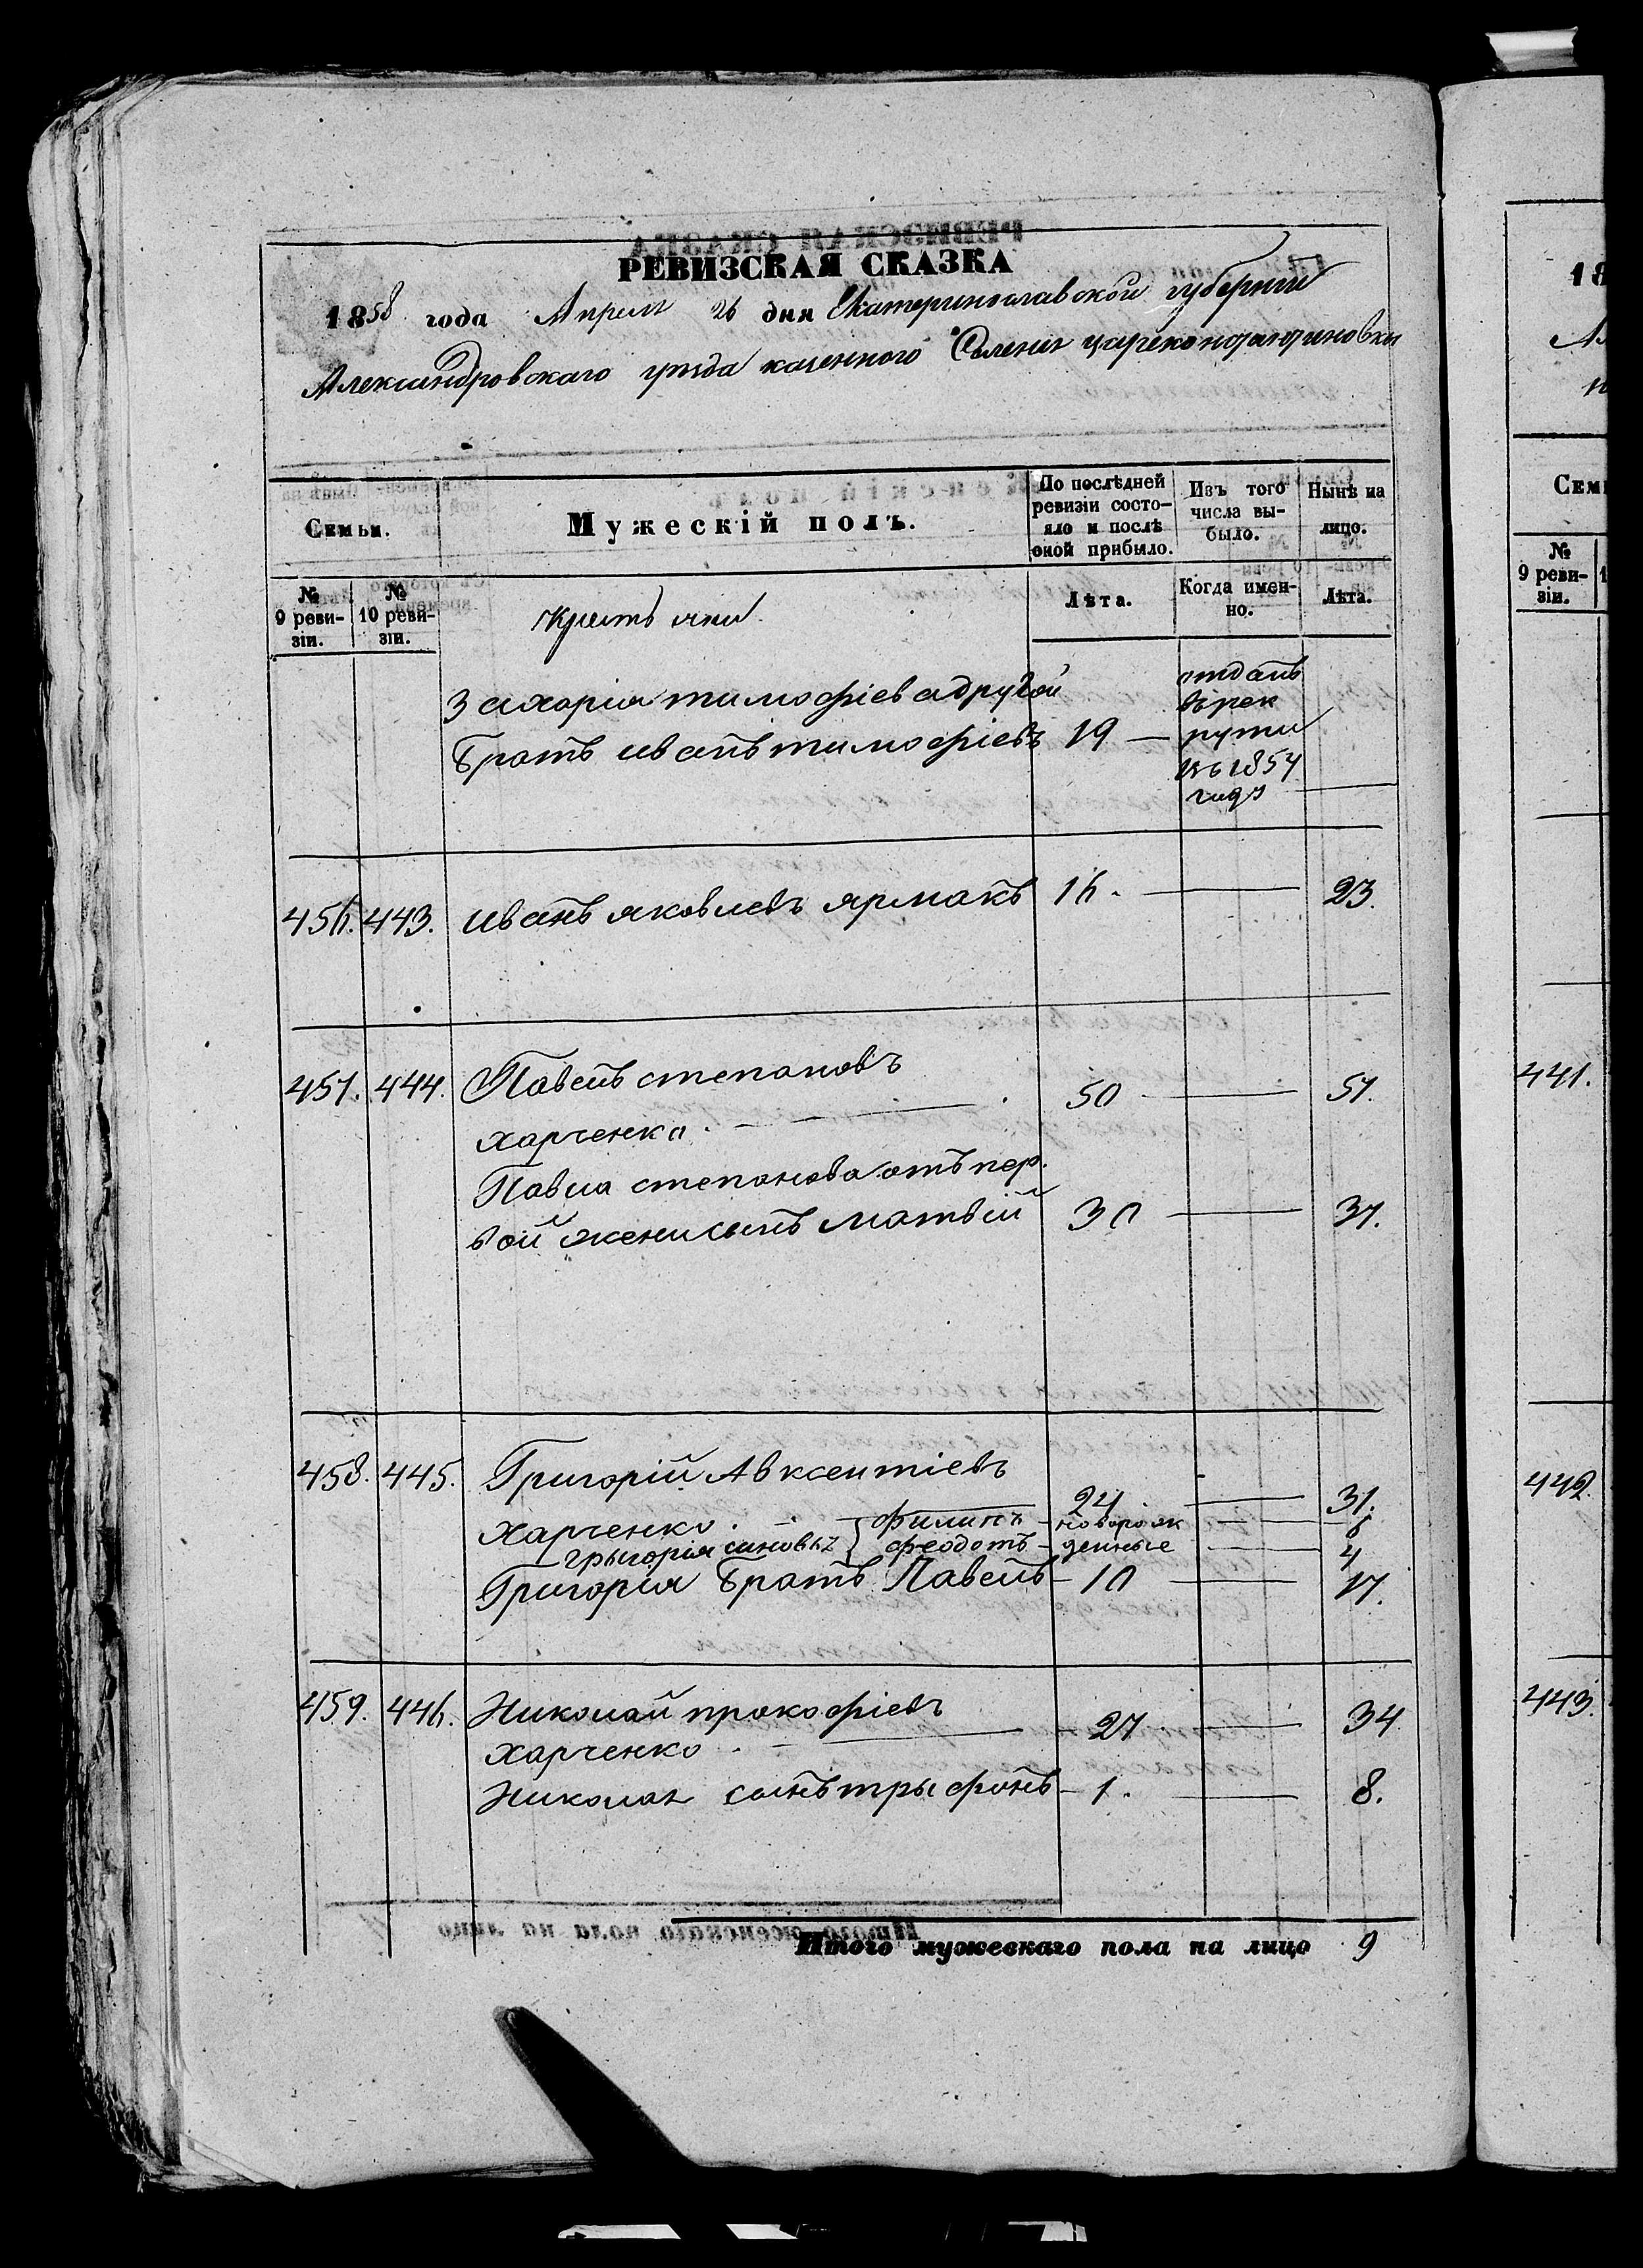 РЕВИЗСКАЯ СКАЗКА
1858 года Апреля 26 дня Екатеринославской губернии
Александровскаго уезда казенного Селения цареконстантиновки
Семьи. Мужескій полъ. По послѣдней ревизіи состояло и послѣ оной прибыло. Изъ того числа выбыло. Нынѣ на лицо.
№ 9 ревизіи. № 10 ревизіи. Лѣта. Когда именно. Лѣта.
Захария тимофіева другой отданъ
братъ иванъ тимофіевъ 19 — върек
руты
въ 1854
году
456. 443. иванъ яковлевъ ярмакъ 16. — 23.
457. 444. Павелъ степановъ
харченко. — 50 — 57.
Павла степанова отъ пер.
вой жены сынъ матвій 30 — 37.
458. 445. Григорій Авксентіевъ
харченко. 24 — 31.
грыгория сыновья { филипъ - новорож — 6
феодотъ - денные — 4
Григория братъ Павелъ - 10 — 17.
459. 446. Николай прокофіевъ
харченко — 27 — 34
Николая сынъ трыфонъ - 1. — 8.
Итого мужескаго пола на лицо 9
18
Семь
№ 9 ревизіи.
441.
442.
443.